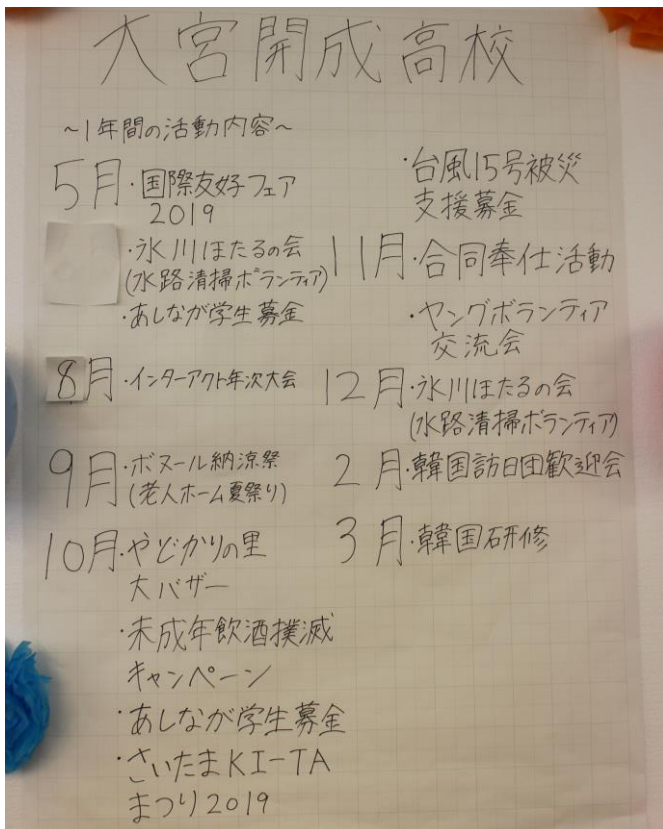 大宮開成高校
～1年間の活動内容～
5月・国際友好フェア
2019
・氷川ほたるの会
(水路清掃ボランティア)
・あしなが学生募金
8月・インターアクト年次大会
9月・ボヌール納涼祭
(老人ホーム夏祭り)
10月・やどかりの里
大バザー
・未成年飲酒撲滅
キャンペーン
・あしなが学生募金
・さいたまKI-TA
まつり2019
・台風15号被災
支援募金
11月・合同奉仕活動
・ヤングボランティア
交流会
12月・氷川ほたるの会
(水路清掃ボランティア)
2月・韓国訪日団歓迎会
3月・韓国研修